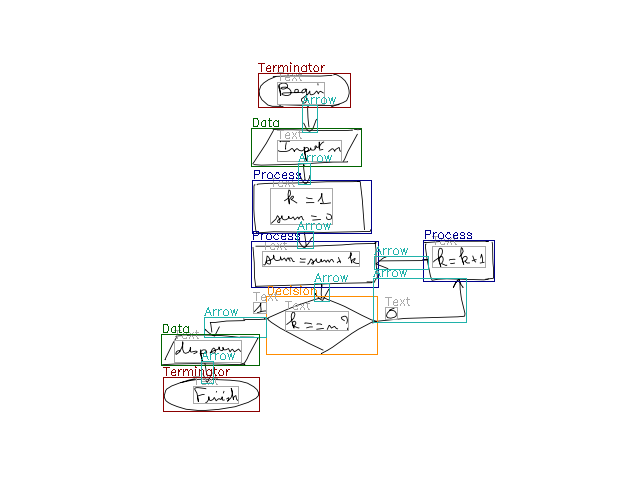 Terminator
Text
Begin
Arrow
Data
Text
Input n
Arrow
Process
Text
k = 1
sum = 0
Arrow
Process
Text
sum = sum + k
Process
Text
k = k + 1
Arrow
Arrow
Arrow
Decision
Text
k == n?
Text
1
Text
0
Arrow
Data
Text
disp sum
Arrow
Terminator
Text
Finish